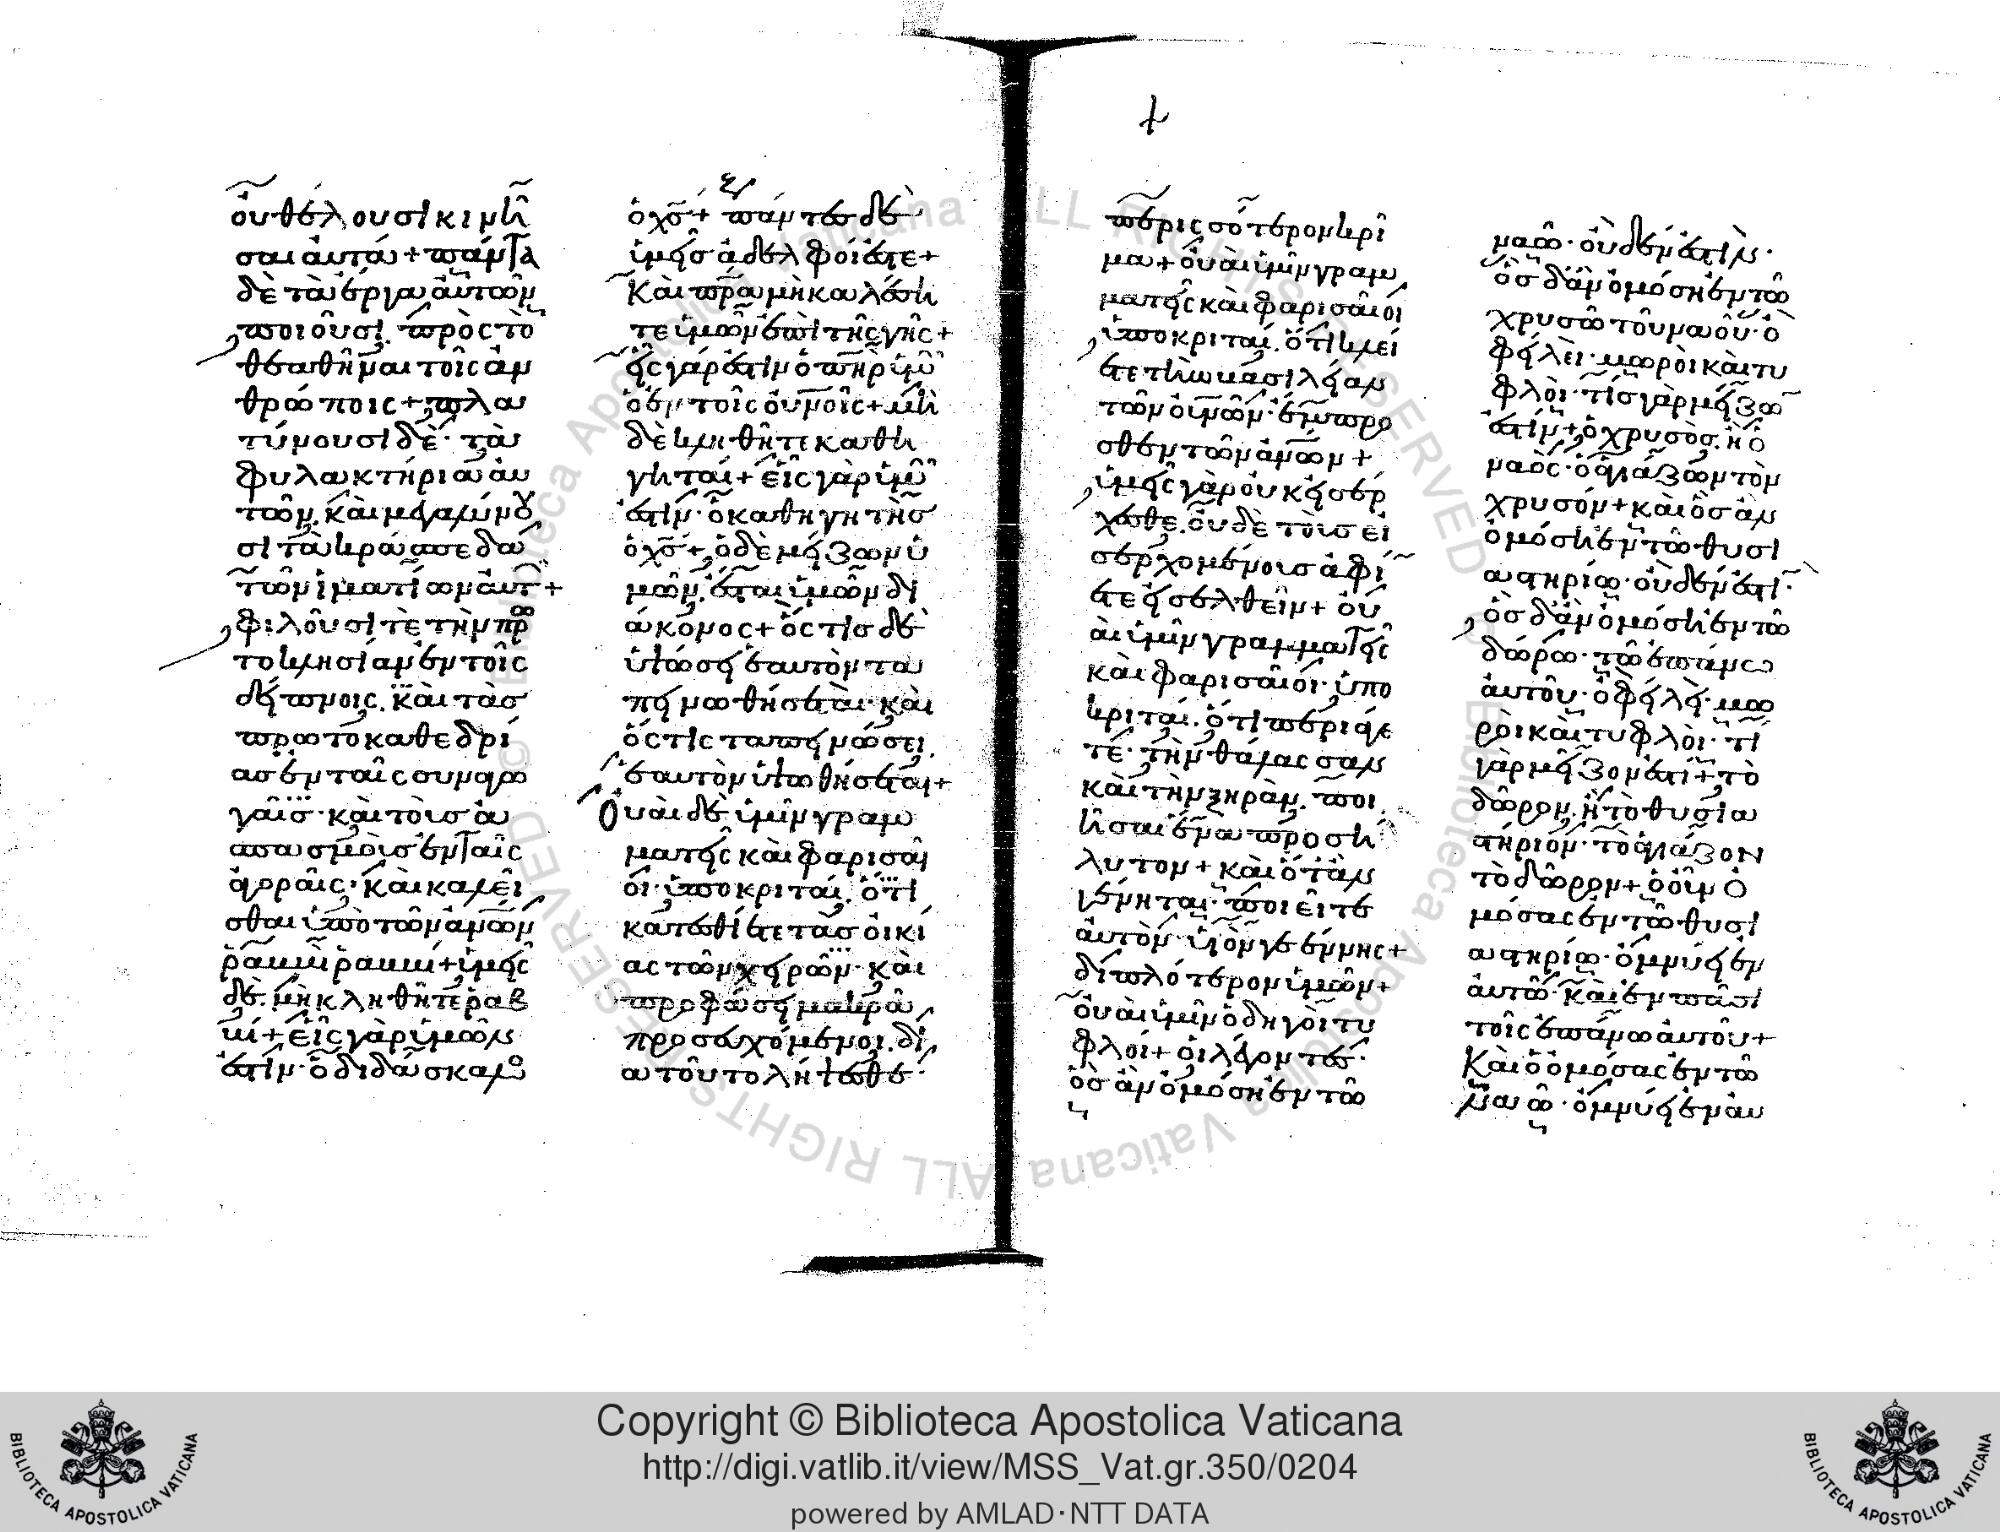 οὐ θέλουσι κινῆ
σαι αὐτά + πάντα
δὲ τὰ ἔργα αὐτῶν
ποιοῦσι. πρὸς τὸ
θεαθῆναι τοῖς ἀν
θρώποις + πλα
τύνουσι δὲ · τὰ
φυλακτήρια αὐ
τῶν. καὶ μεγαλύνου
σι τὰ κράσπεδα
τῶν ἱματίων αὐτ +
φιλοῦσί τε τὴν πρω
τοκλησίαν ἐν τοῖς
δείπνοις. καὶ τὰς
πρωτοκαθεδρί
ας ἐν ταῖς συναγω
γαῖς · καὶ τοὺς ἀ
σπασμοὺς ἐν ταῖς
ἀγοραῖς · καὶ καλεῖ
σθαι ὑπὸ τῶν ἀνῶν
ῥαββὶ ῥαββί + ὑμεῖς
δὲ. μὴ κληθῆτε ῥαβ
βί + εἷς γάρ ὑμῶν
ἐστίν · ὁ διδάσκαλο
ὁ χς + πάντες δὲ
ὑμεῖς ἀδελφοί ἐστε +
Καὶ πρα μὴ καλέση
τε ὑμῶν ἐπὶ τῆς γῆς +
εἷς γάρ ἐστιν ὁ πηρ ὑμῶ
ὁ ἐν τοῖς οὐνοῖς + μη
δὲ κληθῆτε καθη
γηταί + εἷς γὰρ ὑμῶ
ἐστίν · ὁ καθηγητὴς
ὁ χς +, ὁ δὲ μείζων ὑ
μῶν. ἔσται ὑμῶν δι
άκονος + ὅστις δὲ
ὑψώσει ἑαυτὸν τα
πεινωθήσεται · καὶ
ὅστις ταπεινώσει
ἑαυτὸν ὑψωθήσεται +
Οὐαὶ δὲ ὑμῖν γραμ
ματεῖς καὶ φαρισαῖ
οι · ὑποκριταί. ὅτι
κατεσθίετε τὰς οἰκί
ας τῶν χηρῶν · καὶ
προφάσει μακρὰ
προσευχόμενοι. δι
α τοῦτο λήψεσθε ·
περισσότερον κρῖ
μα + οὐαὶ ὑμῖν γραμ
ματεῖς καὶ φαρισαῖοι
ὑποκριταί. ὅτι κλεί
ετε τὴν βασιλείαν
τῶν οὐνῶν · ἔμπρο
σθεν τῶν ἀνῶν +
ὑμεῖς γὰρ οὐκ εἰσέρ
χεσθε. οὐδὲ τοὺς εἰ
σερχομένους ἀφί
ετε εἰσελθεῖν + οὐ
αὶ ὑμῖν γραμματεῖς
καὶ φαρισαῖοι · ὑπο
κριταί. ὅτι περιάγε
τε · τὴν θάλασσαν
καὶ τὴν ξηρὰν. ποι
ῆσαι ἕνα προσή
λυτον + καὶ ὅταν
γένηται · ποιεῖτε
αὐτὸν · υἱὸν γεέννης +
διπλότερον ὑμῶν +
οὐαὶ ὑμῖν ὁδηγοὶ τυ
φλοί + οἱ λέγοντες ·
ὃς ἂν ὀμόση ἐν τῶ
ναῶ · οὐδέν ἐστιν ·
ὃς δ' ἂν ὀμόση ἐν τῶ
χρυσῶ τοῦ ναοῦ · ὀ
φείλει · μωροὶ καὶ τυ
φλοὶ · τίς γὰρ μείζω
ἐστίν + ὁ χρυσὸς. ἢ ὁ
ναὸς · ὁ ἁγιάζων τὸν
χρυσόν + καὶ ὃς ἂν
ὀμόση ἐν τῶ θυσι
αστηρίω · οὐδέν ἐστι ·
ὃς δ' ἂν ὀμόση ἐν τῶ
δώρω · τῶ ἐπάνω
αὐτοῦ · ὀφείλει · μω
ροὶ καὶ τυφλοὶ · τί
γὰρ μεῖζον ἐστί + τὸ
δῶρον. ἢ τὸ θυσια
στήριον · τὸ ἁγιάζον
τὸ δῶρον + ὁ οὖν ὀ
μόσας ἐν τῶ θυσι
αστηρίω · ὀμνύει ἐν
αὐτῶ · καὶ ἐν πᾶσι
τοῖς ἐπάνω αὐτοῦ +
Καὶ ὁ ὀμόσας ἐν τῶ
ναῶ · ὀμνύει ἐν αυ
Copyright © Biblioteca Apostolica Vaticana
http://digi.vatlib.it/view/MSS_Vat.gr.350/0204
powered by AMLAD·NTT DATA
BIBLIOTECA APOSTOLICA VATICANA
BIBLIOTECA APOSTOLICA VATICANA